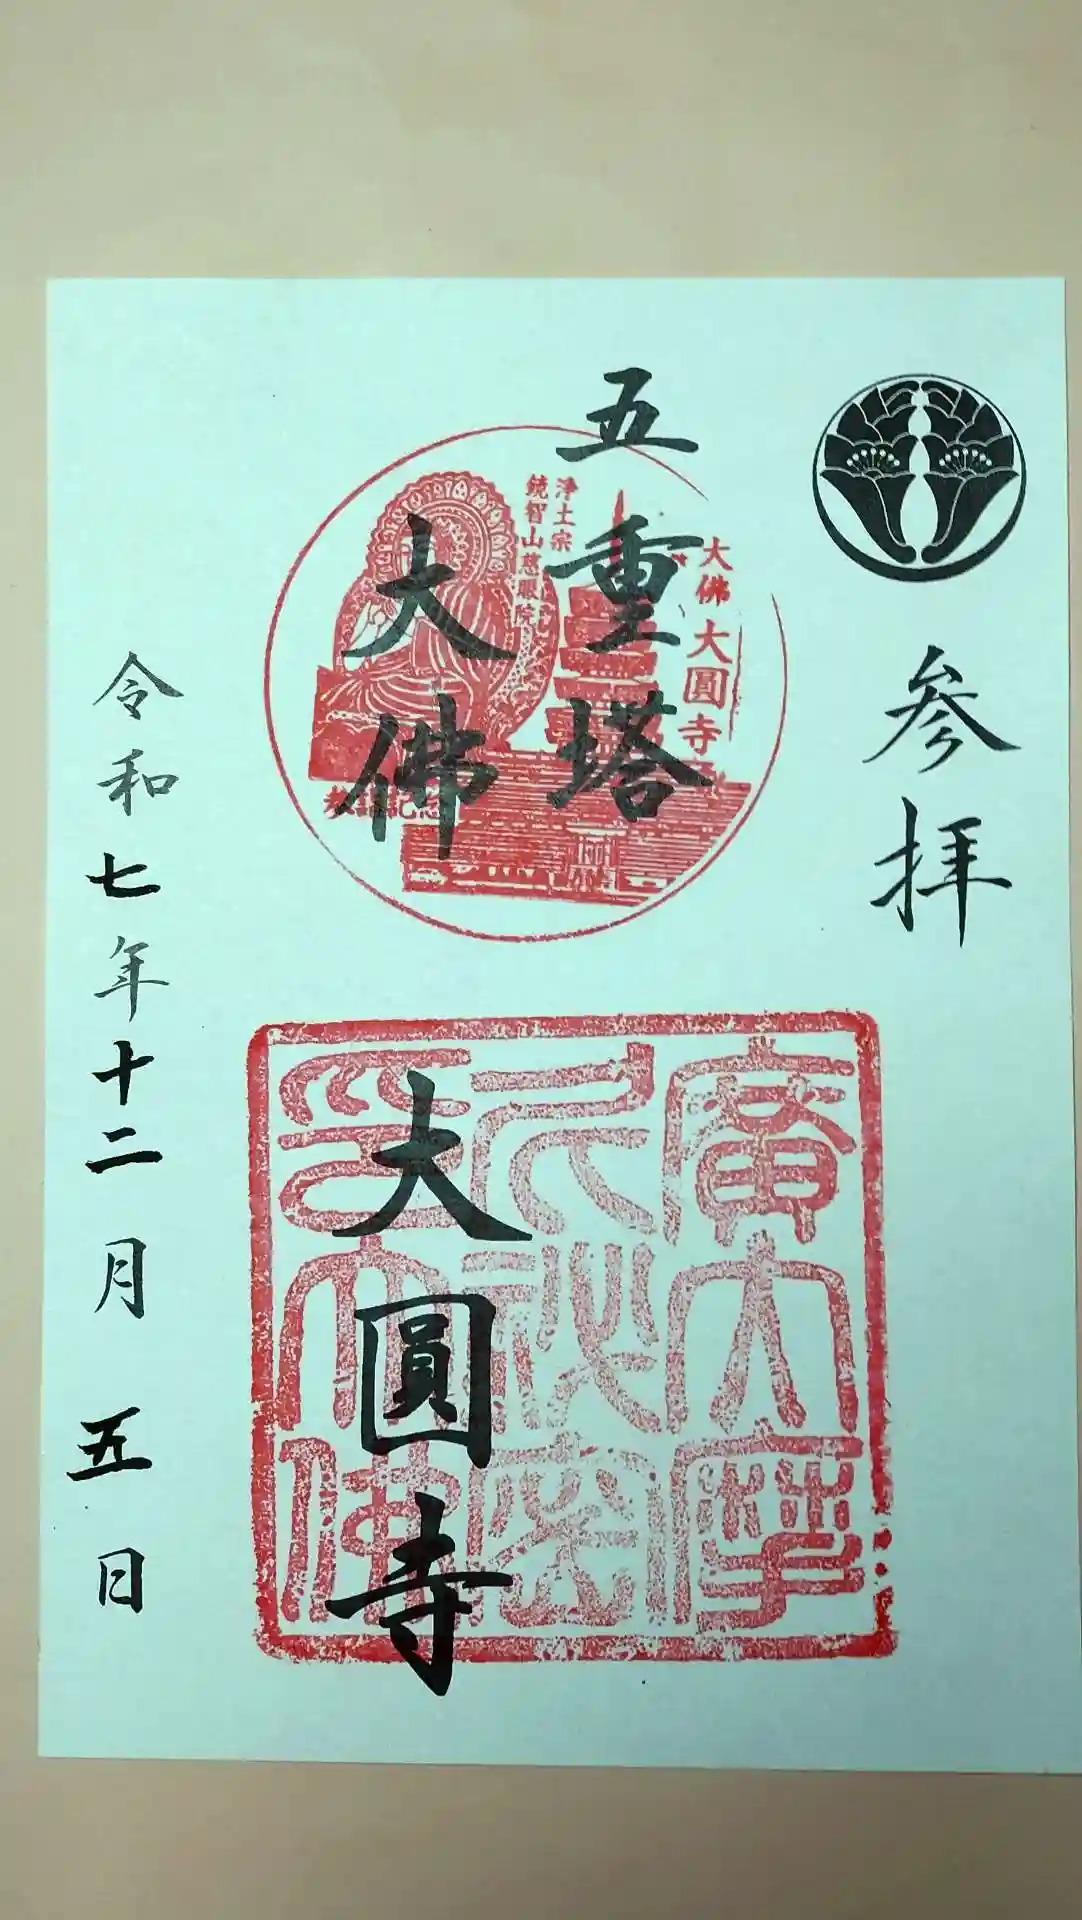 参拝
五重塔
大佛
大佛 大圓寺
浄土宗
鏡智山慈眼院
大圓寺
令和七年十二月五日